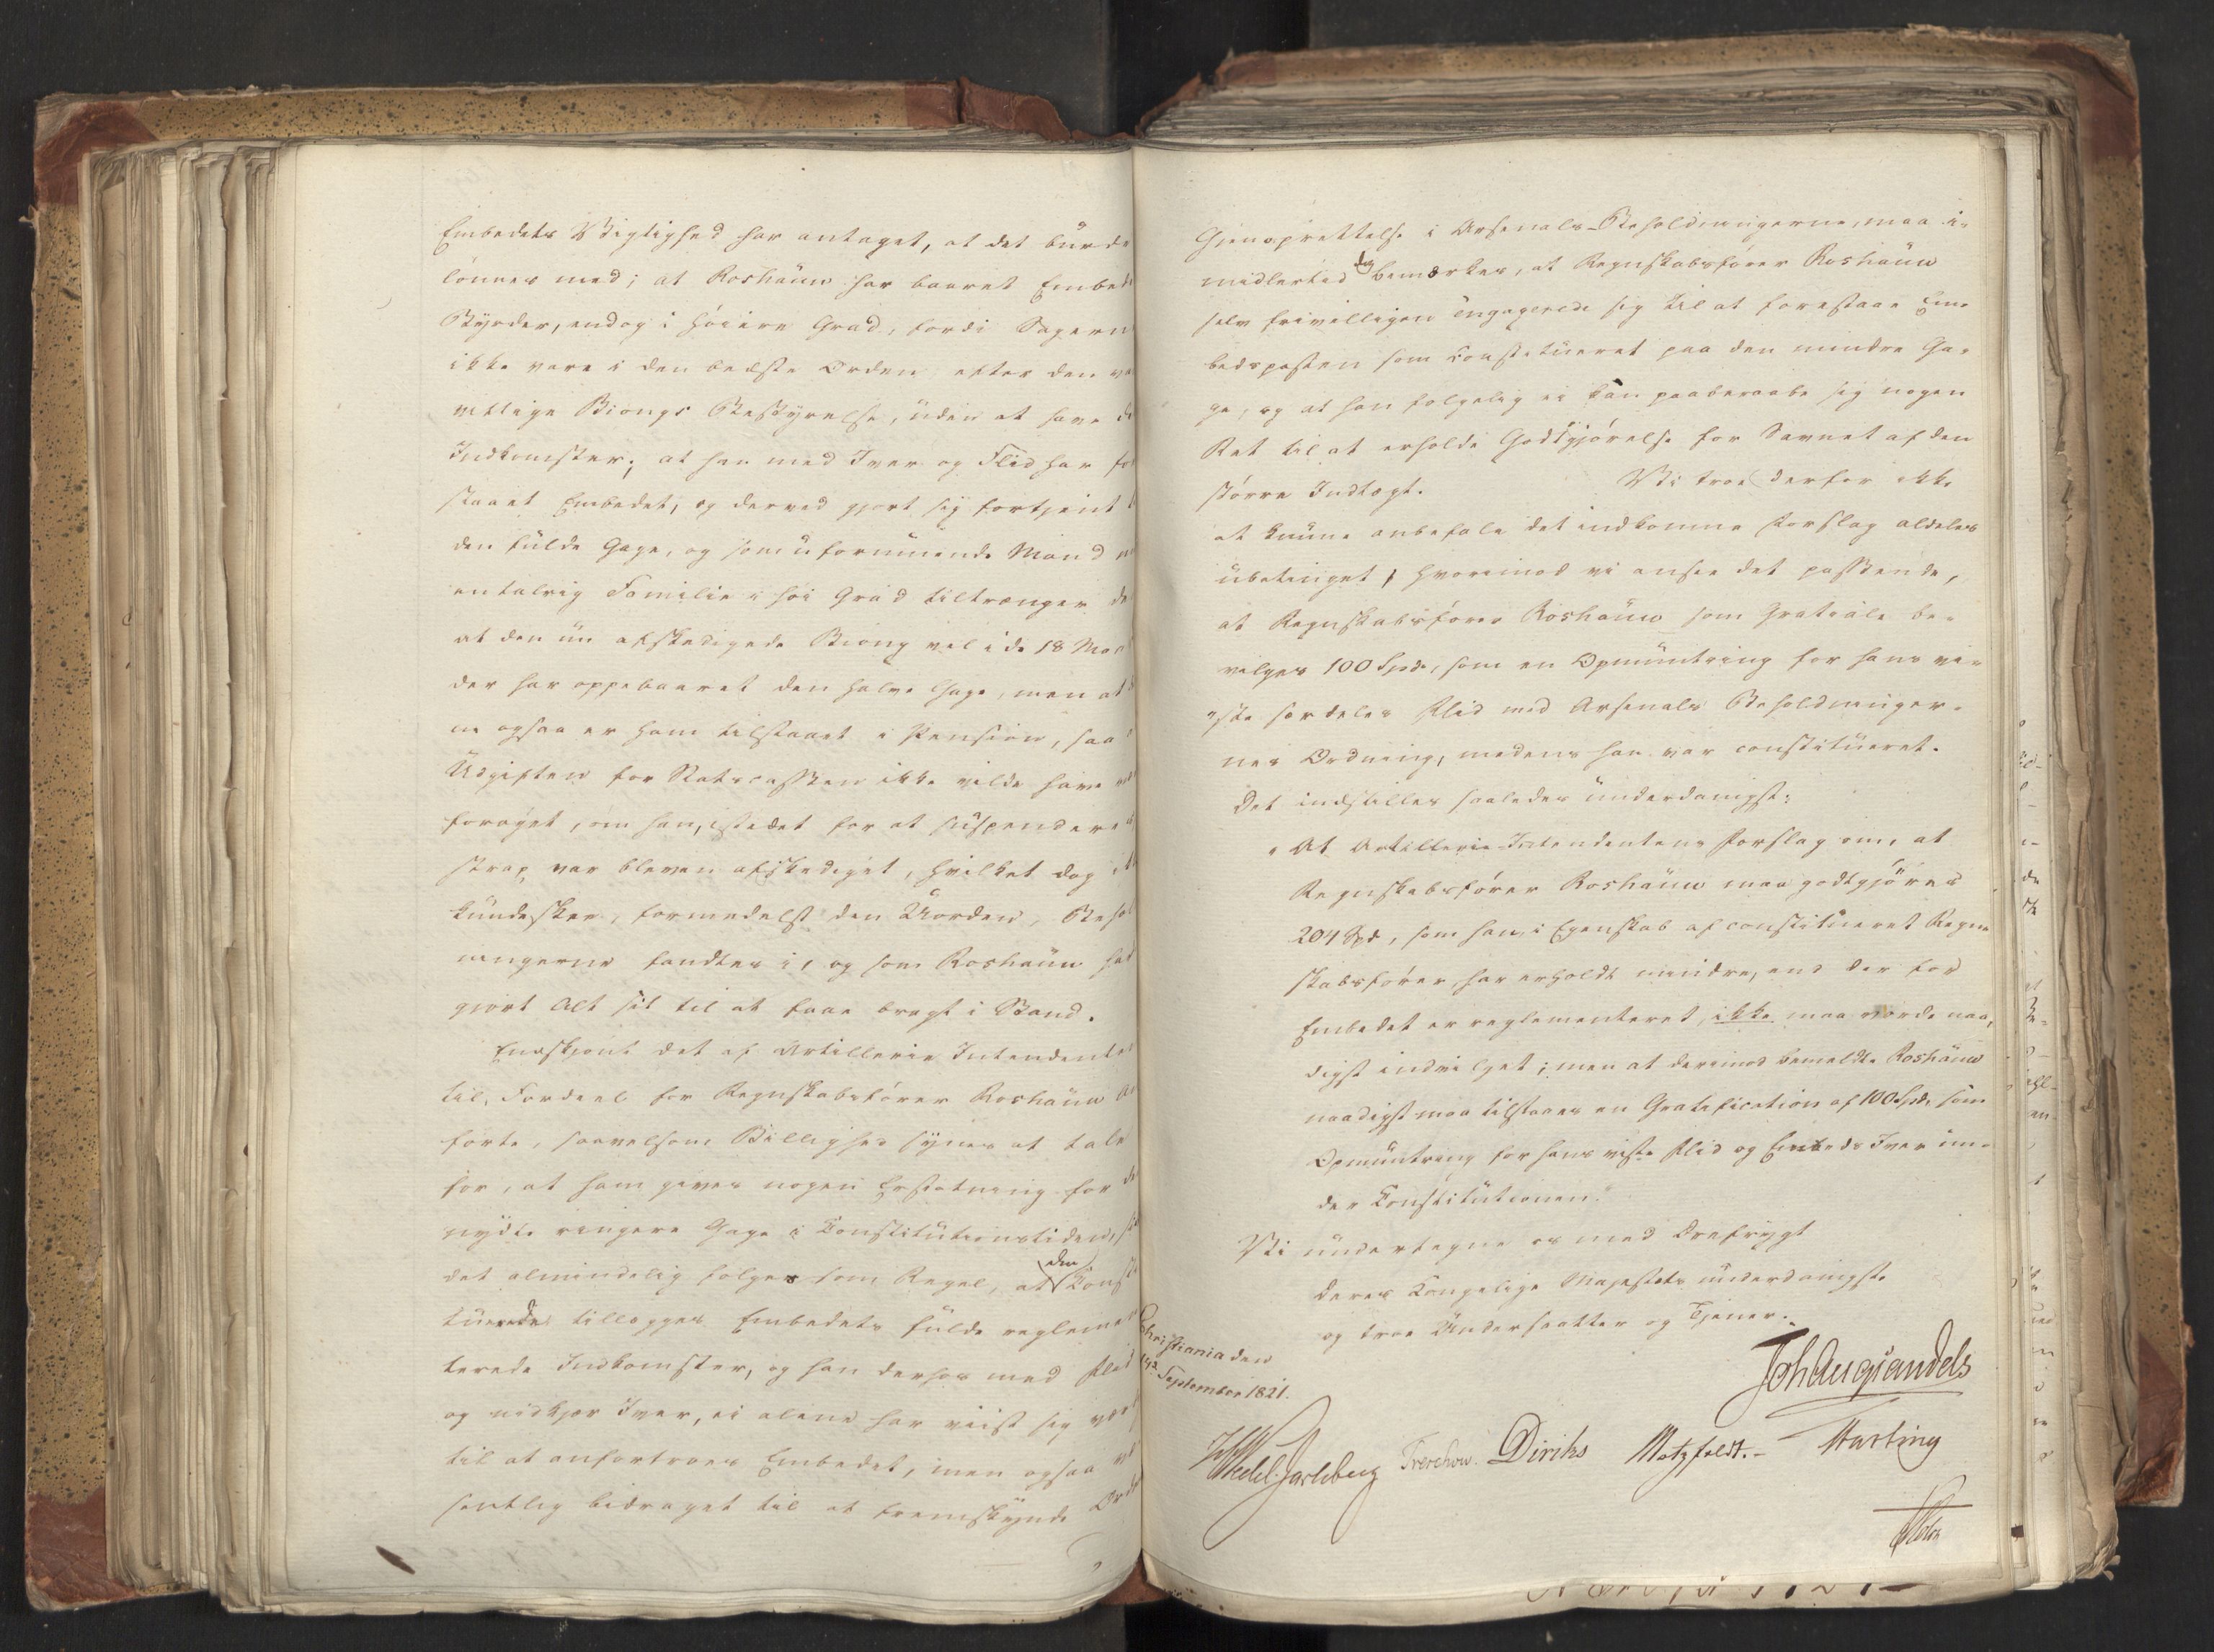 Embedets Vigtighed har antaget, at det burde
lønnes med; at Roshauw har baaret Embed
Byrder, endog i høiere Grad, fordi Sagern
ikke vare i den bedste Orden efter den va
vittige Biongs Bestyrelse, uden at have d
Indkomster; at han med Iver og Flid har for
staaet Embedet, og derved gjort sig fortjent t
den fulde Gage, og som uformuende Mand m
en talrig Familie i høi Grad tiltrænger de
at den nu afskedigede Biong vel i de 18 Maa
der har oppebaaret den halve Gage, men at d
ne ogsaa er ham tilstaaet i Pension, saa
Udgiften for Statscassen ikke vilde have
forøget, om han, istedet for at suspendere
strax var bleven afskediget, hvilket dog ik
kunde skee, formedelst den Uorden, Behol
ningerne fandtes i, og som Roshauw har
gjort Alt sit til at faae bragt i Stand.
Endskjønt det af Artillerie Intendente
til Fordeel for Regnskabsfører Roshauw An
førte, saavelsom Billighed synes at tale
for, at ham gives nogen Erstatning for de
nydte ringere Gage i Constitutionstiden,
det almindelig følges som Regel, at den Consti
tuerede tillægges Embedets fulde reglemen
terede Indkomster, og han derhos med Flid
og nidkjær Iver, ei alene har viist sig værd
til at anfortroes Embedet, men ogsaa væ
sentlig bidraget til at fremskynde Ord
Gienoprettelse i Arsenals-Beholdningerne, maa i-
midlertid dog bemærkes, at Regnskabsfører Roshauw
selv frivilligen engagerede sig til at forestaae Em-
bedsposten som constitueret paa den mindre Ga-
ge, og at han følgelig ei kan paaberaabe sig nogen
Ret til at erholde Godtgjørelse for Savnet af den
større Indtægt. Vi troe derfor ikke
at kunne anbefale det indkomne Forslag aldeles
ubetinget, hvorimod vi ansee det passende,
at Regnskabsfører Roshauw som Gratiale be-
vilges 100 Spd., som en Opmuntring for hans vi-
ste særdeles Flid med Arsenals Beholdninger-
nes Ordning, medens han var constitueret.
Det indstilles saaledes underdanigst:
"At Artillerie-Intendentens Forslag om, at
Regnskabsfører Roshauw maa godtgjøres
204 Spd, som han, i Egenskab af constitueret Regn-
skabsfører, har erholdt mindre, end der for
Embedet er reglementeret, ikke maa vorde naa-
digst indvilget; men at derimod bemeldte Roshauw
naadigst maa tilstaaes en Gratification af 100 Spd. som
Opmuntring for hans viste Flid og Embeds Iver un-
der Constitutionen."
Vi undertegne os med Ærefrygt
Deres Kongelige Majestæts underdanigste
og troe Undersaatter og Tjener.
Christiania den
September 1821.
Joh Aug Sandels
Wedel-Jarlsberg Treschow. Diriks Motzfeldt.- Fasting
Holst